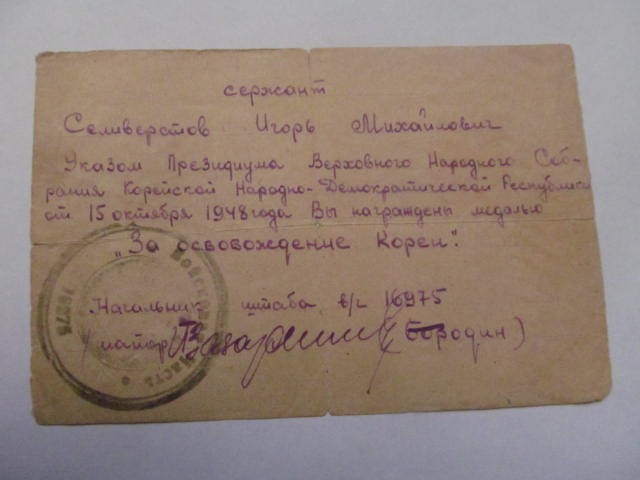 сержант
Селиверстов Игорь Михайлович
Указом Президиума Верховного Народного Соб-
рания Корейской Народно-Демократической Республики
от 15 октября 1948 года Вы награждены медалью
„За освобождение Кореи".
Начальник штаба в/ч 16975
(майор Бородин)
Войсковая часть
16975